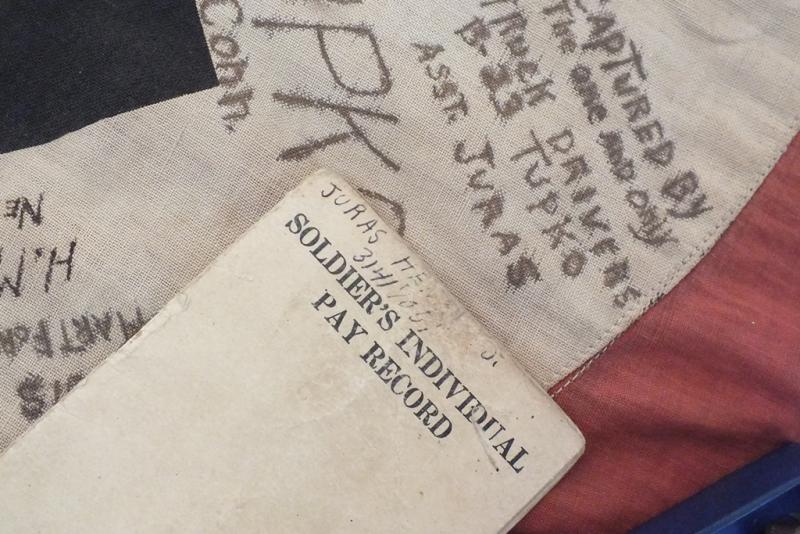 Conn.
PK
CAPTURED BY
THE ONE AND ONLY
TRUCK DRIVERS
B-23 TUPKO
ASST. JURAS
NE
H.M
HARTFOR
JURAS
SOLDIER'S INDIVIDUAL
PAY RECORD